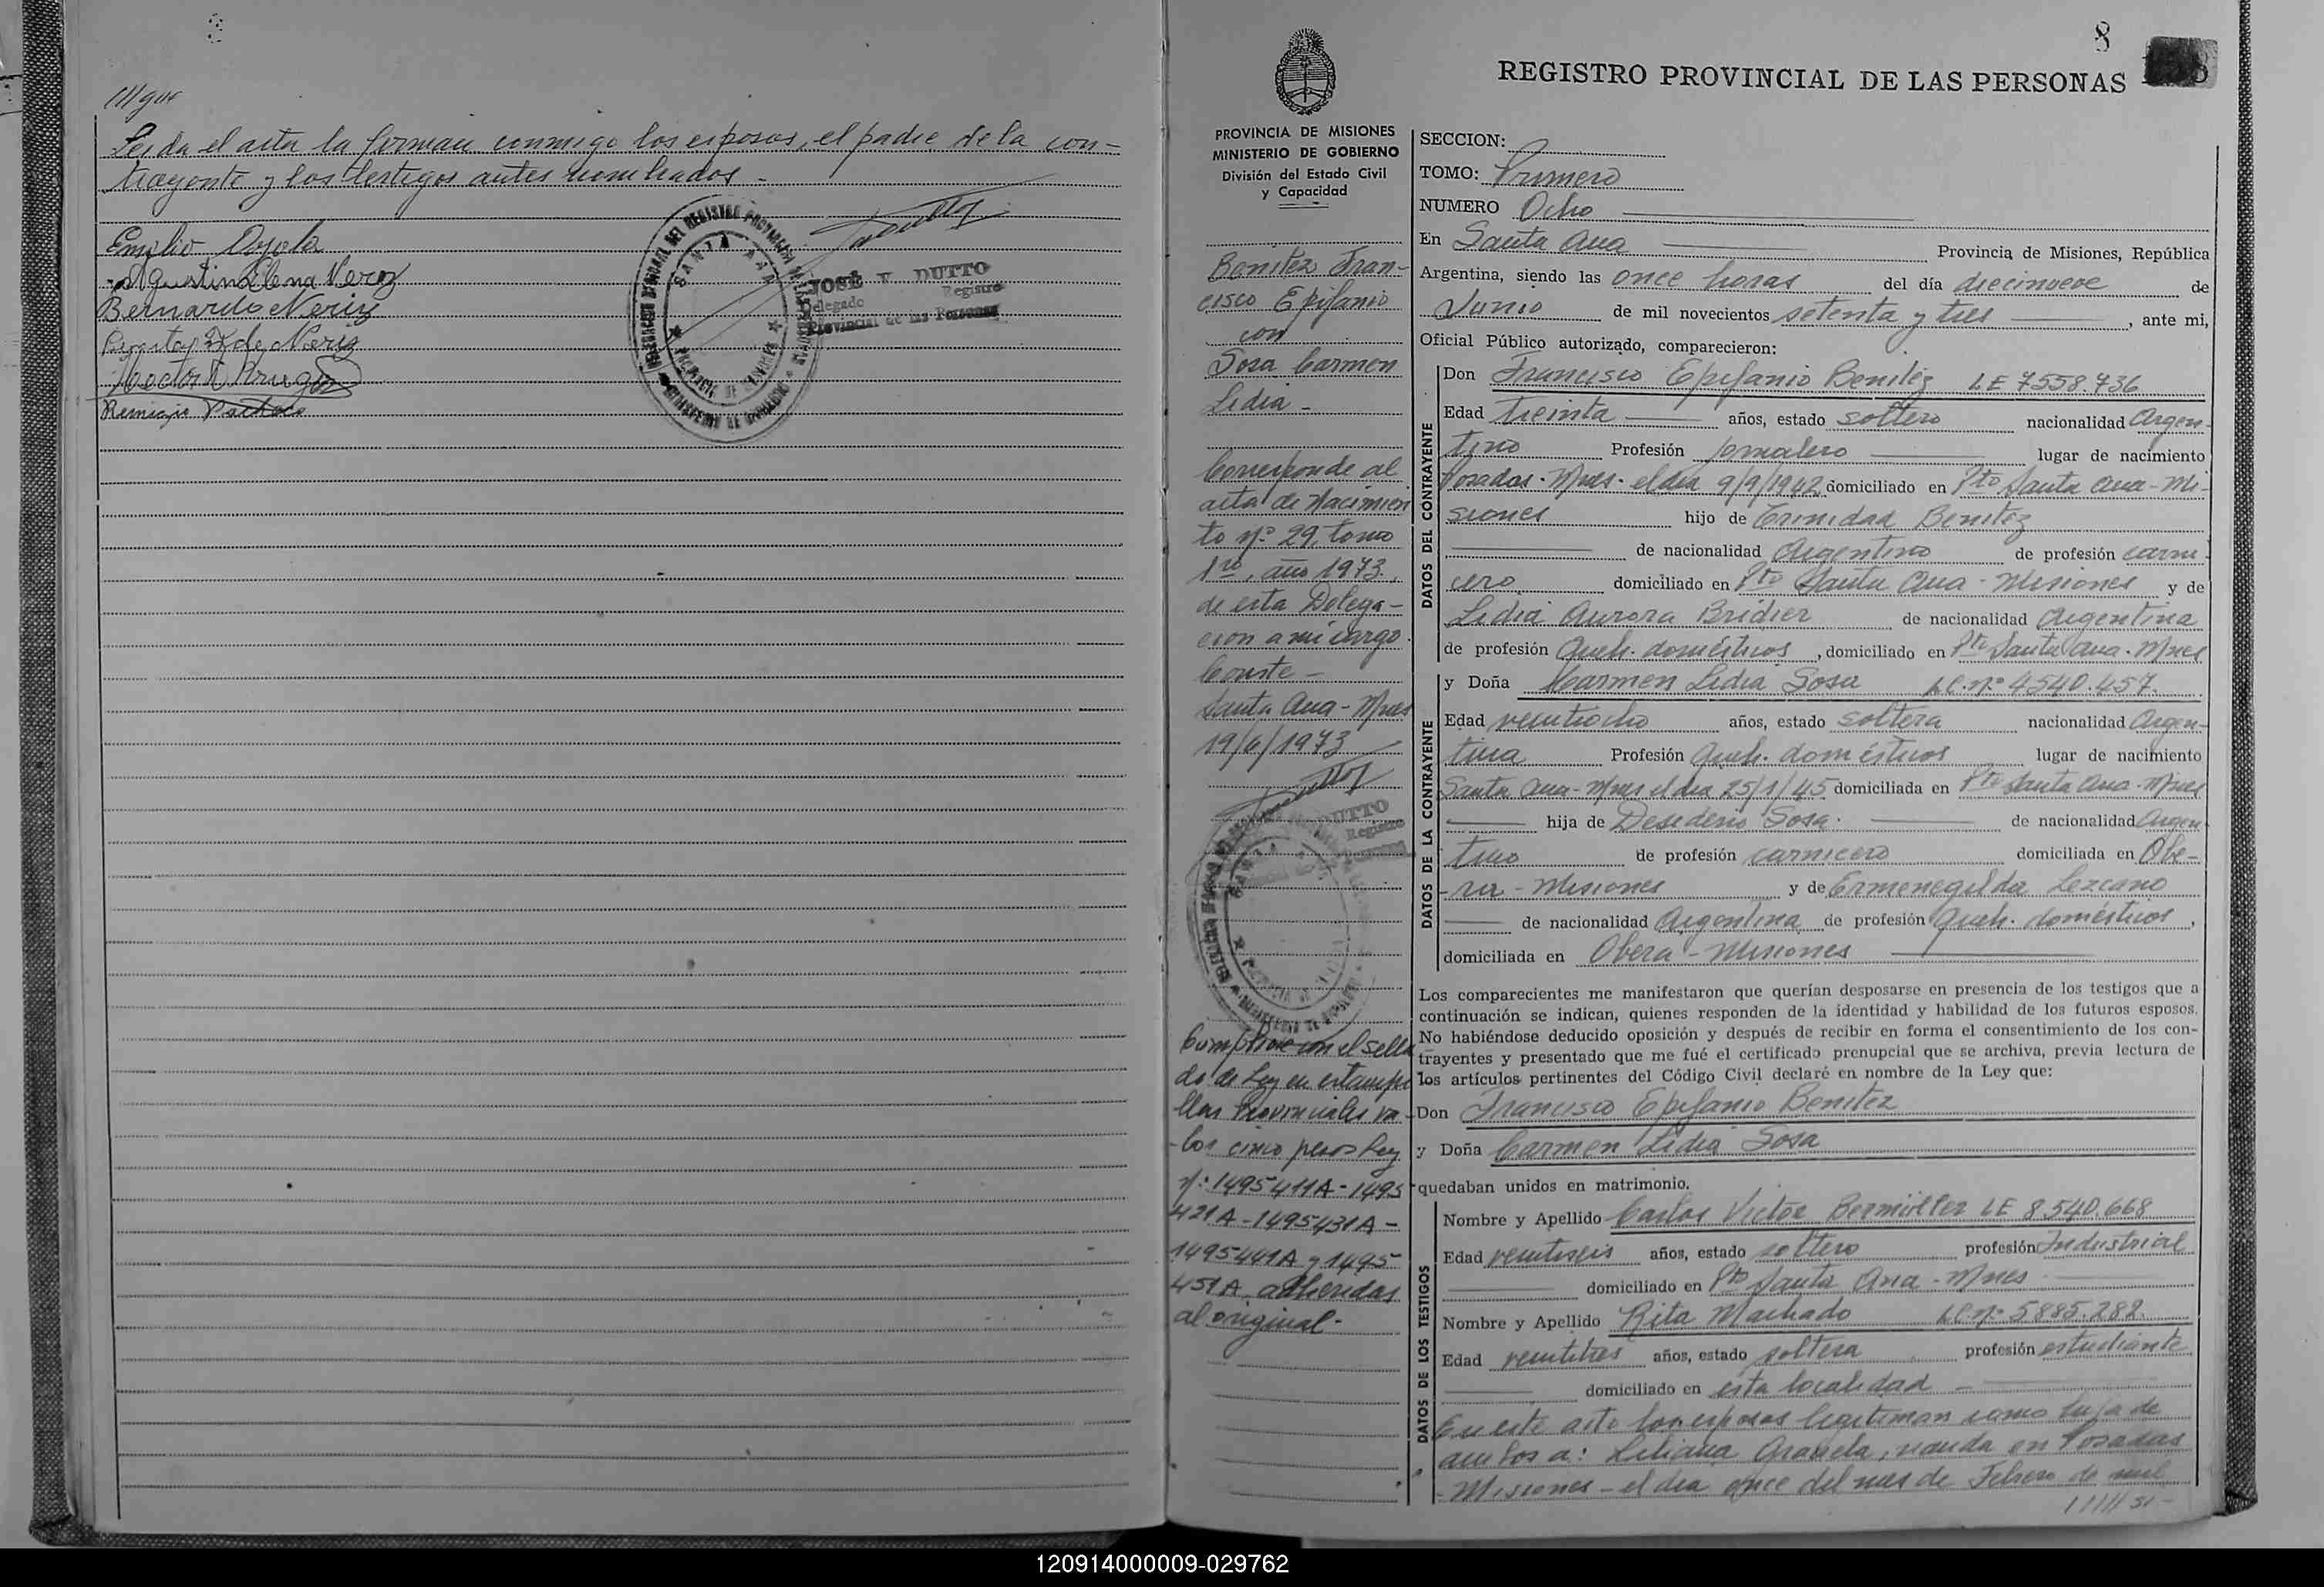 ///que
Leida el acta la firman conmigo los esposos, el padre de la con-
trayente y los testigos antes nombrados -
Emilio Oyola
Agustina Elena Neriz
Bernardo Neriz
de Neriz
Remigio Pacheco
DELEGACION SECCIONAL DEL REGISTRO PROVINCIAL DE LAS PERSONAS
SANTA ANA
PROVINCIA DE MISIONES
MINISTERIO DE GOBIERNO
JOSÉ V. DUTTO
Delegado Registro
Provincial de las Personas
8
REGISTRO PROVINCIAL DE LAS PERSONAS
PROVINCIA DE MISIONES
MINISTERIO DE GOBIERNO
División del Estado Civil
y Capacidad
Benitez Fran-
cisco Epifanio
con
Sosa Carmen
Lidia -
Corresponde al
acta de Nacimien
to Nº 29, tomo
1ro, año 1973,
de esta Delega-
cion a mi cargo.
Conste -
Santa Ana - Mnes
19/6/1973
DUTTO
Registro
Cumplióse con el sella
do de Ley en estampi
llas Provinciales va-
lor cinco pesos Ley
Nº: 1495411A - 1495
421A - 1495431A -
1495441A y 1495
451A adheridas
al original -
SECCION:
TOMO: Primero
NUMERO Ocho
En Santa Ana Provincia de Misiones, República
Argentina, siendo las once horas del día diecinueve de
Junio de mil novecientos setenta y tres, ante mi,
Oficial Público autorizado, comparecieron:
DATOS DEL CONTRAYENTE
Don Francisco Epifanio Benitez LE 7558.736
Edad treinta años, estado soltero nacionalidad Argen-
tino Profesión jornalero lugar de nacimiento
Posadas - Mnes - el dia 9/9/1942 domiciliado en Pto Santa Ana - Mi-
siones hijo de Trinidad Benitez
de nacionalidad Argentino de profesión carni-
cero domiciliado en Pto Santa Ana - Misiones y de
Lidia Aurora Bridier de nacionalidad Argentina
de profesión Queh. domésticos, domiciliado en Pto Santa Ana - Mnes
DATOS DE LA CONTRAYENTE
y Doña Carmen Lidia Sosa LC. Nº 4540.457.
Edad veintiocho años, estado soltera nacionalidad Argen-
tina Profesión Queh. domésticos lugar de nacimiento
Santa Ana - Mnes el dia 25/1/45 domiciliada en Pto Santa Ana - Mnes
hija de Desiderio Sosa. de nacionalidad Argen-
tino de profesión carnicero domiciliada en Obe-
ra - Misiones y de Ermenegilda Lezcano
de nacionalidad Argentina de profesión Queh. domésticos,
domiciliada en Obera - Misiones
Los comparecientes me manifestaron que querían desposarse en presencia de los testigos que a
continuación se indican, quienes responden de la identidad y habilidad de los futuros esposos.
No habiéndose deducido oposición y después de recibir en forma el consentimiento de los con-
trayentes y presentado que me fué el certificado prenupcial que se archiva, previa lectura de
los artículos pertinentes del Código Civil declaré en nombre de la Ley que:
Don Francisco Epifanio Benitez
y Doña Carmen Lidia Sosa
quedaban unidos en matrimonio.
DATOS DE LOS TESTIGOS
Nombre y Apellido Carlos Victor Bermüller LE 8.540.668
Edad veintiseis años, estado soltero profesión Industrial
domiciliado en Pto Santa Ana - Mnes
Nombre y Apellido Rita Machado LC. Nº 5885.282.
Edad veintitres años, estado soltera profesión estudiante
domiciliado en esta localidad -
En este acto los esposos legitiman como hija de
ambos a: Liliana Graciela, nacida en Posadas
- Misiones - el dia once del mes de Febrero de mil
///// si -
120914000009-029762